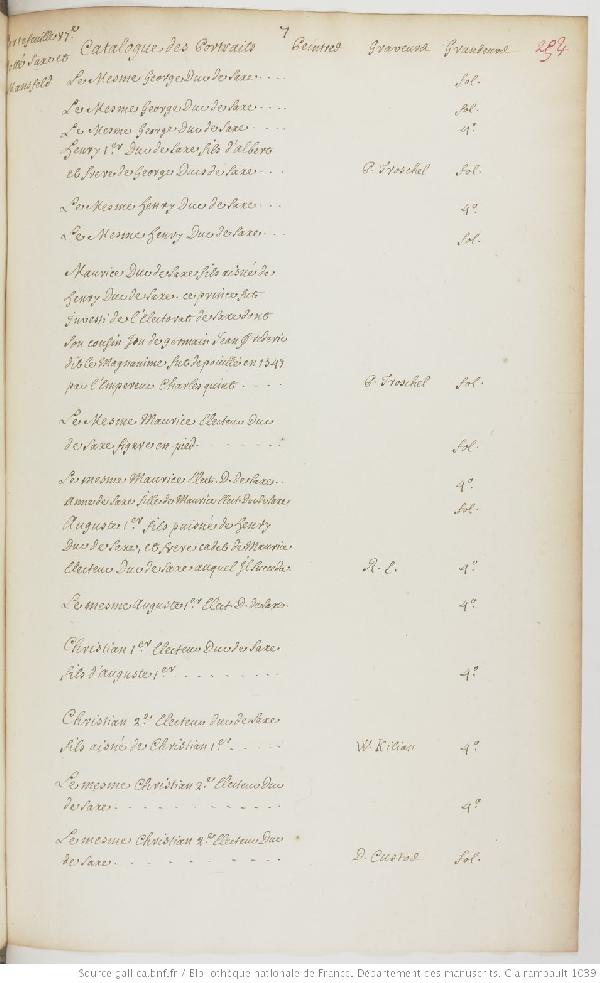 7
Portefeuille 87.e
Saxe et
Mansfeld
Catalogue des Portraits Peintres Graveurs Grandeurs 254
Le Mesme George Duc de Saxe . . . . fol.
Le Mesme George Duc de Saxe . . . . fol.
Le Mesme George Duc de Saxe . . . . 4.o
Henry 1.er Duc de Saxe fils d'albert
et frere de George Duc de Saxe . . . P. Troschel fol.
Le Mesme Henry Duc de Saxe . . . 4.o
Le Mesme Henry Duc de Saxe . . . fol.
Maurice Duc de Saxe fils aisné de
Henry Duc de Saxe. ce prince fut
Investi de l'Electorat de Saxe dont
son cousin Jean frideric
dit le Magnanime fut depouillé en 1547
par l'Empereur Charles quint . . . . P. Troschel fol.
Le Mesme Maurice Electeur Duc
de Saxe figure en pied . . . . . . . fol.
Le mesme Maurice Elect. D. de Saxe . . 4.o
Anne de Saxe fille de Maurice Elect. Duc de Saxe fol.
Auguste 1.er fils puisné de Henry
Duc de Saxe, et frere cadet de Maurice
Electeur Duc de Saxe auquel Il succeda R. E. 4.o
Le mesme Auguste 1.er Elect. D. de Saxe 4.o
Christian 1.er Electeur Duc de Saxe
fils d'auguste 1.er . . . . . . . . 4.o
Christian 2.d Electeur duc de Saxe
fils aisné de Christian 1.er . . . . . W. Kilian 4.o
Le mesme Christian 2.d Electeur Duc
de Saxe . . . . . . . . . . 4.o
Le mesme Christian 2.d Electeur Duc
de Saxe . . . . . . . . . . D. Custod fol.
Source gallica.bnf.fr / Bibliothèque nationale de France. Département des manuscrits. Clairambault 1039